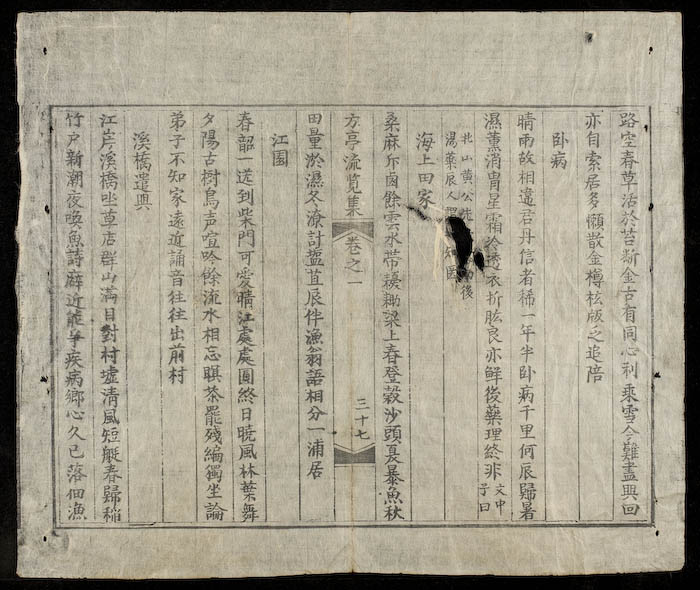 路空春草活於苔斷金古有同心利乘雪今難盡興回
亦自索居多懶散金樽松版乏追陪
臥病
晴雨故相違君丹信者稀一年半臥病千里何辰歸暑
濕薰消胃星霜冷透衣折肱良亦鮮後藥理終非
文中
子曰
北山黃公
後
湯藥辰人
知醫
海上田家
桑麻斥鹵餘雲水帶
梁上春登穀沙頭夏暴魚秋
方亭流覽集
卷之一
三十七
田量淤濕冬潦計
苴辰伴漁翁語相分一浦居
江園
春韶一送到柴門可愛晴江處處園終日曉風林葉舞
夕陽古樹鳥声喧吟餘流水相忘暝茶罷殘編獨坐論
弟子不知家遠近誦音往往出前村
溪橋遣興
江岸溪橋
草店群山滿目對村墟清風短艇春歸稻
竹戶新潮夜喚魚詩癖近能爭疾病鄉心久已落佃漁